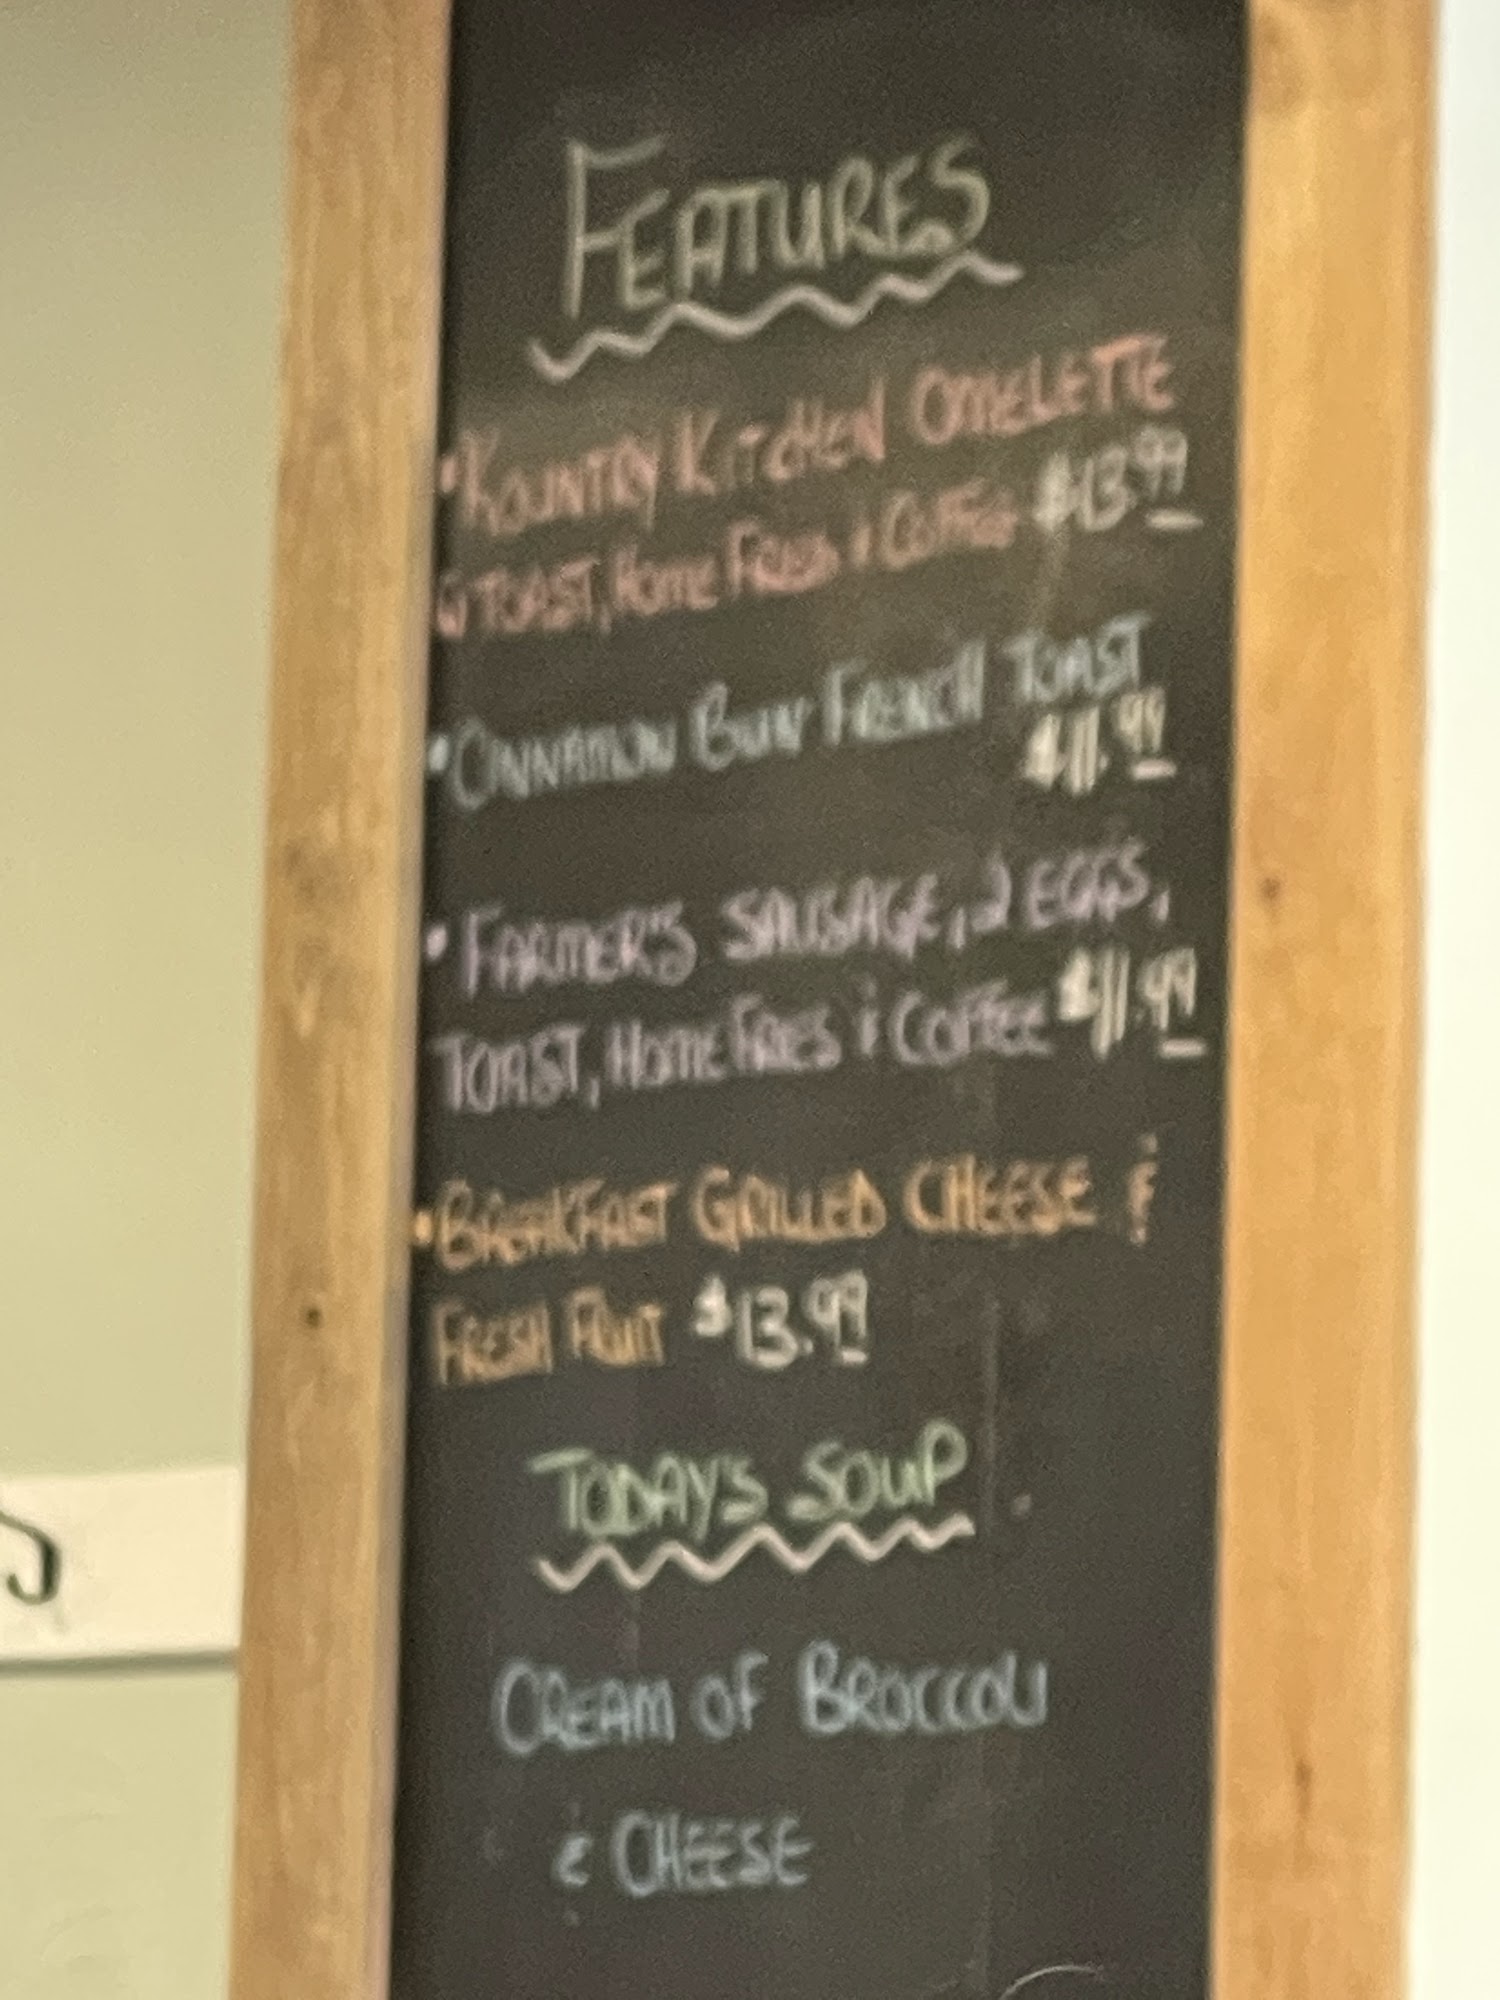 FEATURES
•KOUNTRY KITCHEN OMELETTE
TOAST, HOME FRIES & COFFEE $13.99
•CINNAMON BUN FRENCH TOAST
$11.99
•FARMER'S SAUSAGE, 2 EGGS,
TOAST, HOME FRIES & COFFEE $11.99
•BREAKFAST GRILLED CHEESE &
FRESH FRUIT $13.99
TODAY'S SOUP
CREAM OF BROCCOLI
& CHEESE
S